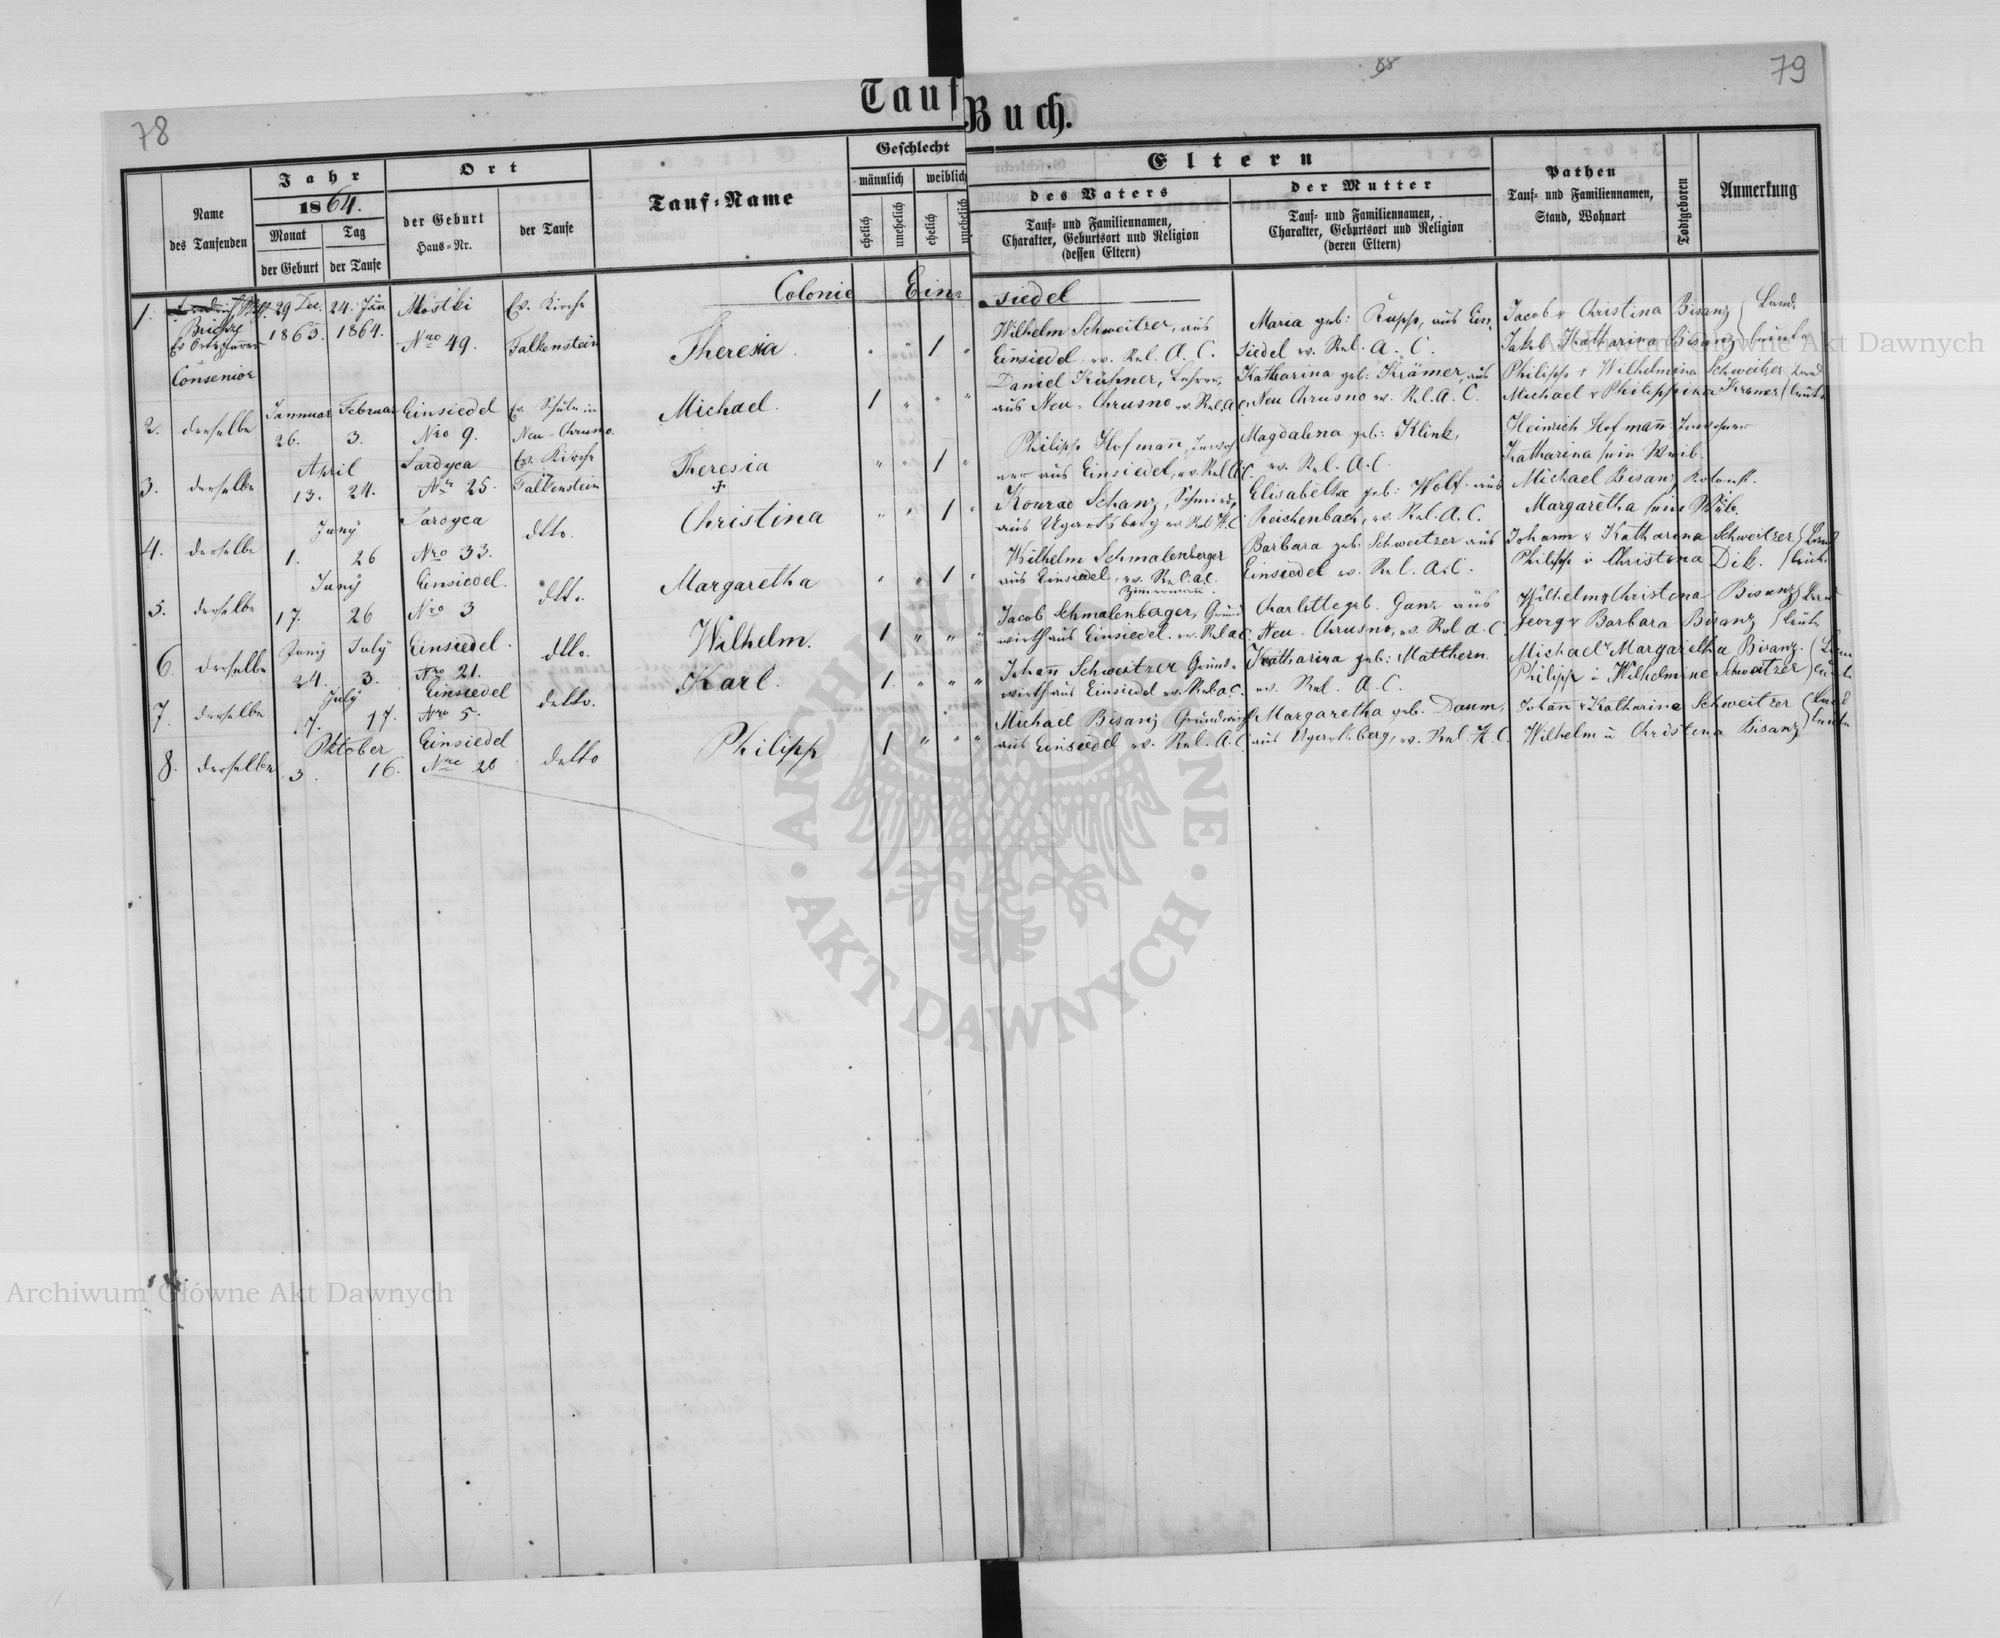 78
88
79
Tauf Buch.
Name des Taufenden
Jahr
1864.
Monat
Tag
der Geburt
der Taufe
Ort
der Geburt
Haus-Nr.
der Taufe
Tauf-Name
Geschlecht
männlich
weiblich
ehelich
unehelich
ehelich
unehelich
Eltern
des Vaters
Tauf- und Familiennamen,
Charakter, Geburtsort und Religion
(dessen Eltern)
der Mutter
Tauf- und Familiennamen,
Charakter, Geburtsort und Religion
(deren Eltern)
Pathen
Tauf- und Familiennamen,
Stand, Wohnort
Todtgeboren
Anmerkung
Colonie Einsiedel
1. 29 Dec. 24. Jän Mostki Ev. Kirche Wilhelm Schweitzer, aus Maria geb: Kupp, aus Ein- Jacob & Christina Bisanz Land-
Ev Ortspfarrer 1863. 1864. Nro 49. Falkenstein Theresia 1 Einsiedel, ev. Rel. A. C. siedel ev. Rel. A. C. Jakob Katharina Bisanz leute
Consenior
Daniel Kühner, Lehrer, Katharina geb: Krämer, aus Philipp & Wilhelmina Schweitzer Land
2. derselbe Januar Februar Einsiedel Ev. Schule in Michael. 1 aus Neu-Chrusno ev. Rel. A C. Neu Chrusno ev. Rel. A. C. Michael & Philippina Kramer leute
26. 3. Nro 9. Neu-Chrusno.
Philipp Hofmann, Magdalena geb: Klink, Heinrich Hofmann Inwohner
3. derselbe April Sardyca Ev. Kirche Theresia 1 aus Einsiedel, ev. Rel. A.C. ev. Rel. A.C. Katharina sein Weib.
13. 24. Nr 25. Falkenstein
Konrad Schanz, Schmied, Elisabetha geb: Wolf aus Michael Bisanz Kolonist.
4. derselbe Juny Sardyca dtto. Christina 1 aus Ugartsberg ev. Rel. H. C. Reichenbach, ev. Rel. A. C. Margaretha sein Weib.
1. 26 Nro 33.
Wilhelm Schmalenberger Barbara geb: Schweitzer aus Johann & Katharina Schweitzer Land
5. derselbe Juny Einsiedel. dtto. Margaretha 1 aus Einsiedel, ev. Rel. a.C. Einsiedel ev. Rel. A.C. Philipp ü Christina Dik. leute
17. 26 Nro 3 Zimermann.
Jacob Schmalenberger, Grund Charlotte geb. Ganz aus Wilhelm & Christena Bisanz Land
6. derselbe Juny July Einsiedel. dtto. Wilhelm. 1 wirth aus Einsiedel. ev. Rel. a C. Neu-Chrusno, ev. Rel a. C Georg & Barbara Bisanz leute
24. 3. Nro 21.
Johann Schweitzer Grund- Katharina geb: Matthern. Michael & Margaretha Bisanz.
7. derselbe July Einsiedel detto. Karl. 1. wirth aus Einsiedel ev. Rel. a.C. ev. Rel. A.C. Philipp ü Wilhelmine Schweitzer leute
7. 17. Nro 5.
Michael Bisanz Grundwirth Margaretha geb. Daum, Johann & Katharina Schweitzer Land
8. derselbe Oktober Einsiedel detto Philipp 1 aus Einsiedel ev. Rel. A. C. aus Ugartsberg, ev. Rel. H. C. Wilhelm ü Christena Bisanz leute
3. 16. Nro 20
Archiwum Główne Akt Dawnych
ARCHIWUM GŁÓWNE · AKT DAWNYCH ·
Archiwum Główne Akt Dawnych